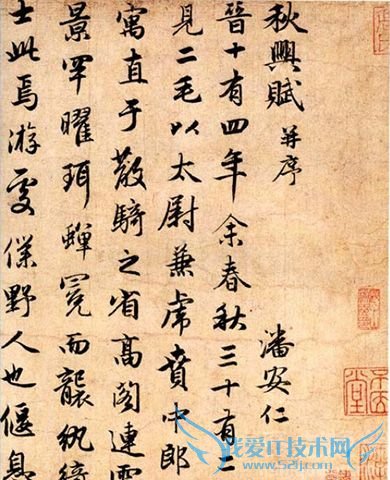 秋興賦 并序 潘安仁
晉十有四年余春秋三十有二
見二毛以太尉兼虎賁中郎
寓直于散騎之省高閣連雲
景罕曜珥蟬冕而襲紈綺
士此焉游處僕野人也偃息
我爱IT技术网
www.52ij.com